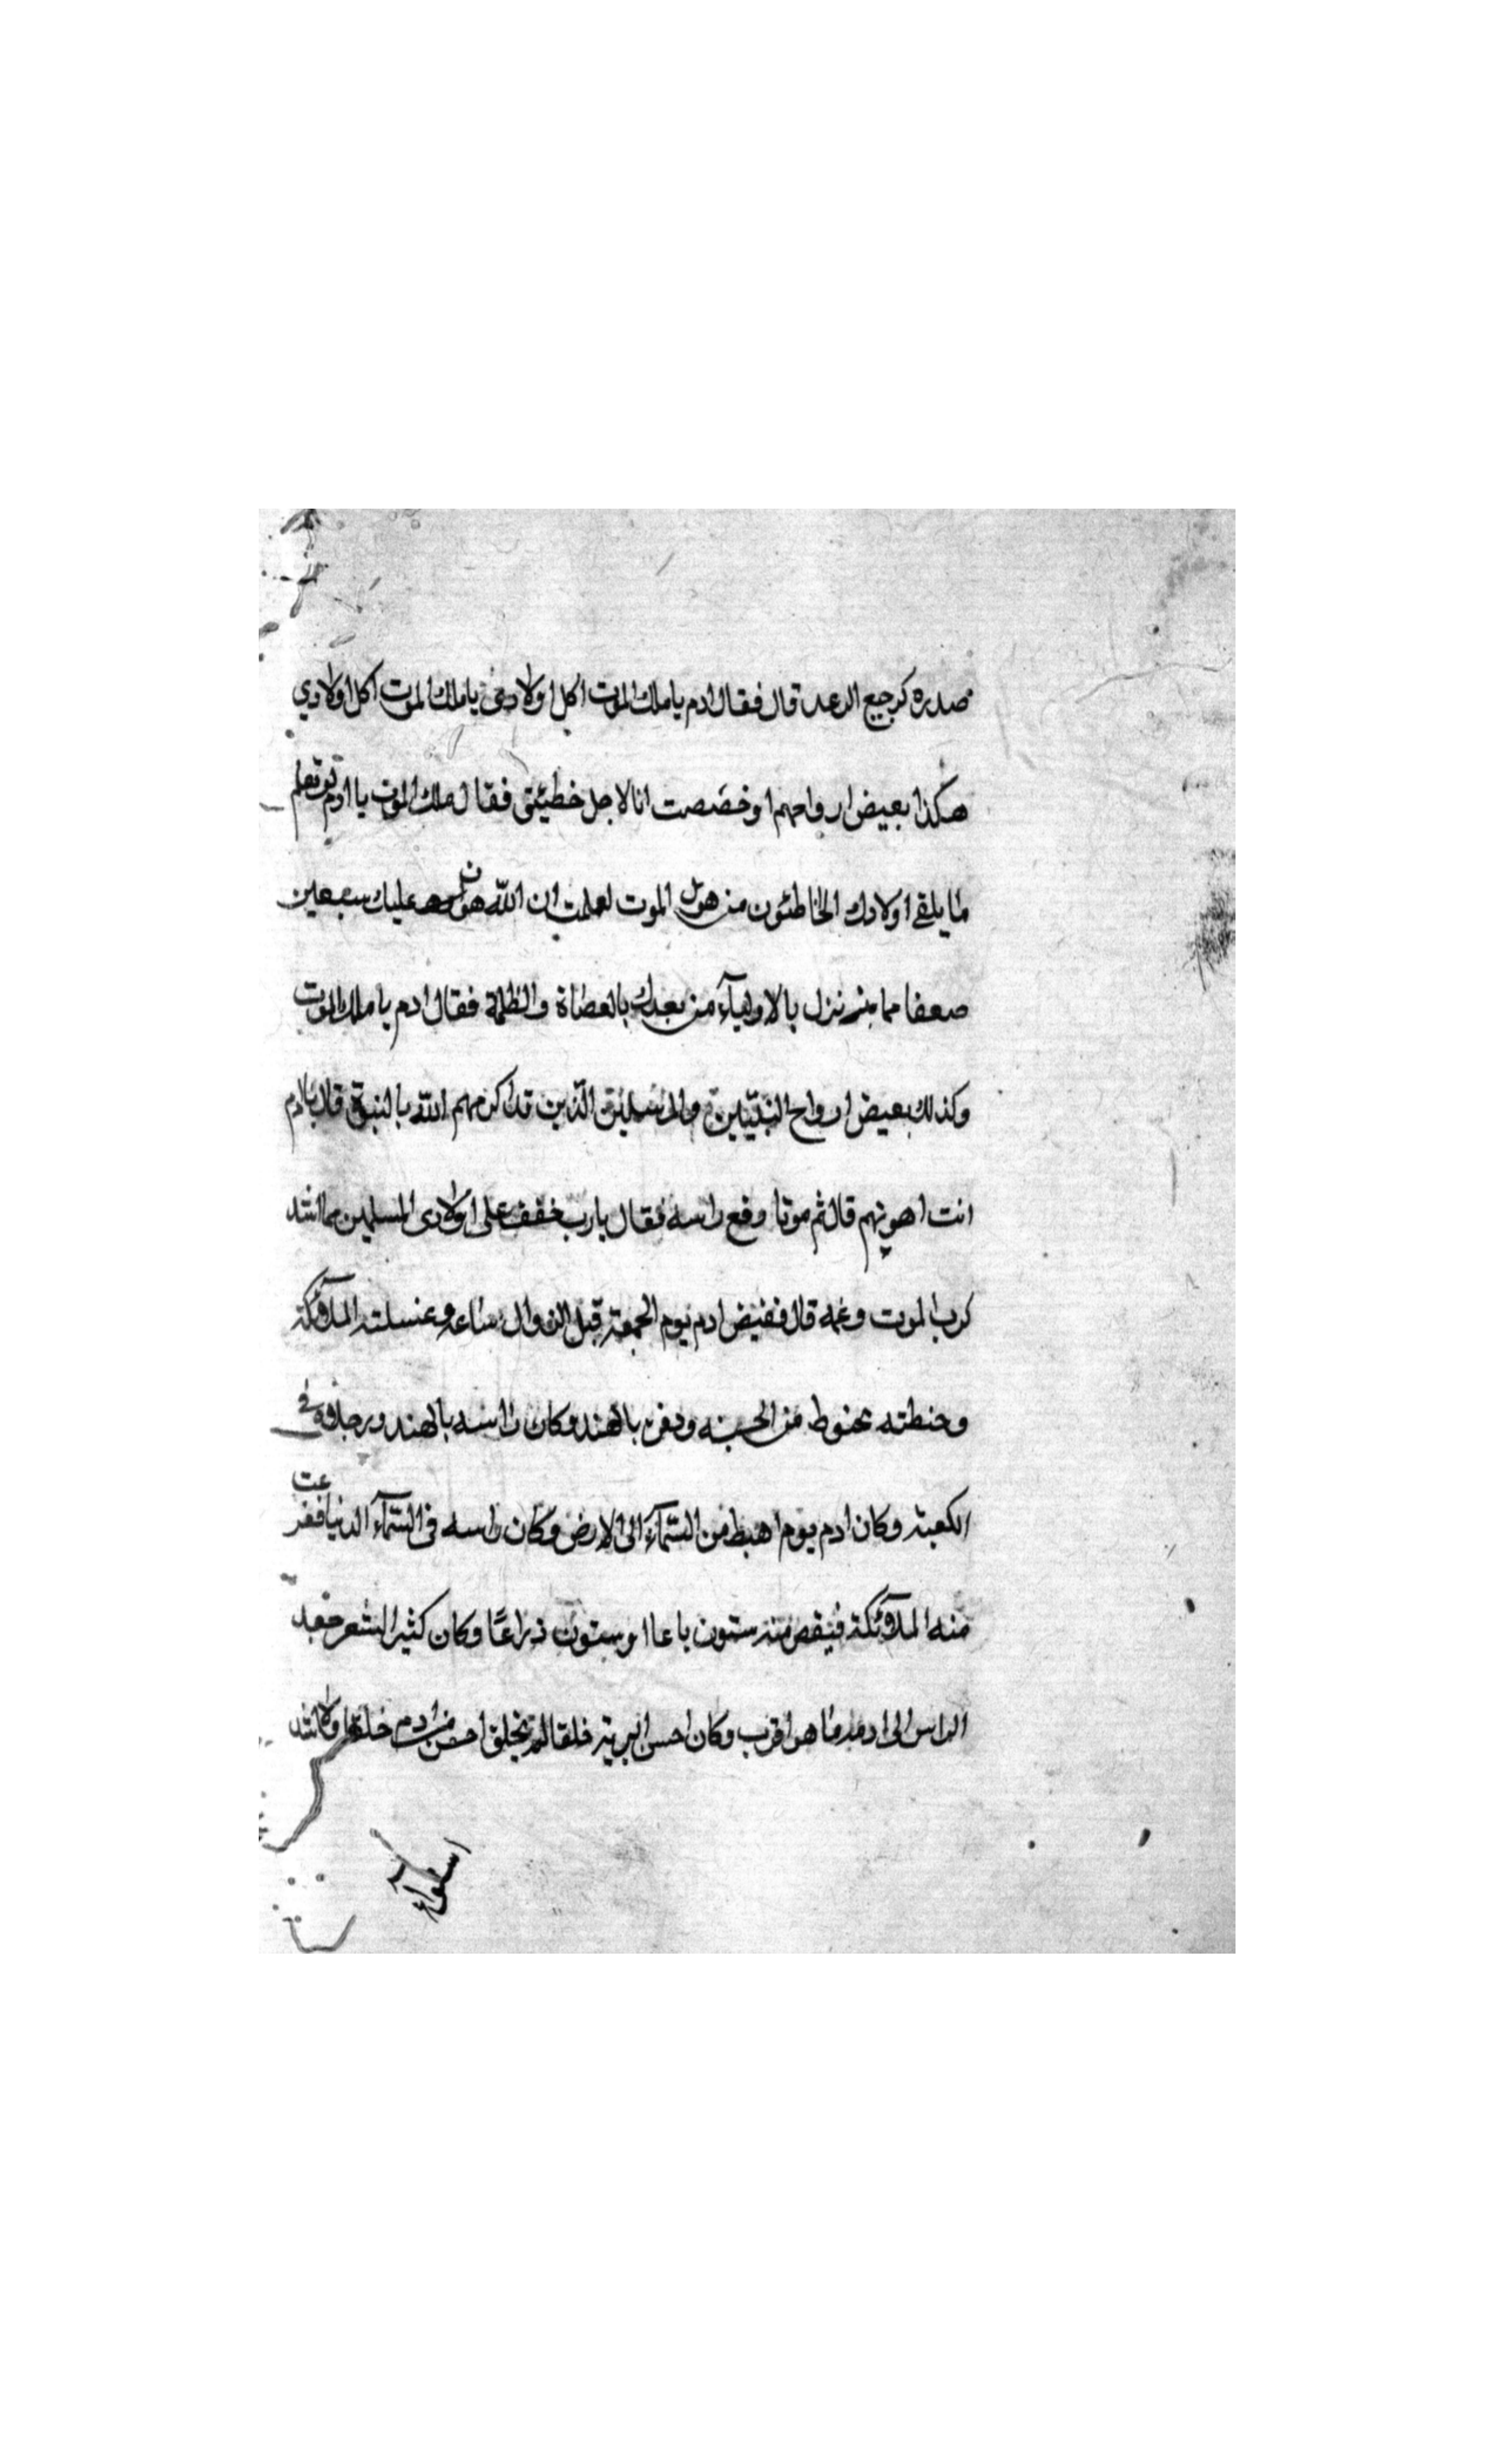 صدره كرجيع الرعد قال فقال ادم يا ملك الموت اكل اولادى يا ملك الموت اكل اولادي
هكذا بعيض ارواحهم او خصصت انا لاجل خطيئتى فقال ملك الموت يا ادم لو تعلم
ما يلقى اولادك الخاطئون من هول الموت لعلمت ان الله هون عليك سبعين
ضعفا مما ينزل بالاولياء من بعدك بالعصاة والظلمة فقال ادم يا ملك الموت
وكذلك بعيض ارواح النبيين والمرسلين الذين قد اكرمهم الله بالنبوة قال يا ادم
انت اهونهم قال ثم موتا رفع راسه فقال يا رب خفف على اولادى المسلمين مما اشد
كرب الموت وغمه قال فقبض ادم يوم الجمعة قبل الزوال ساعة وغسلته الملائكة
وحنطته بحنوط من الجنه ودفن بالهند وكان راسه بالهند ورجلاه فى
الكعبة وكان ادم يوم اهبط من السماء الى الارض وكان راسه فى السماء الدنيا ففزعت
منه الملائكة فنقص منه ستون باعا او ستون ذراعا وكان كثير الشعر جعد
الراس الى ادمه ما هو اقرب وكان احسن البرية خلقا لم يخلق احسن من ادم خلقا ولا اشد